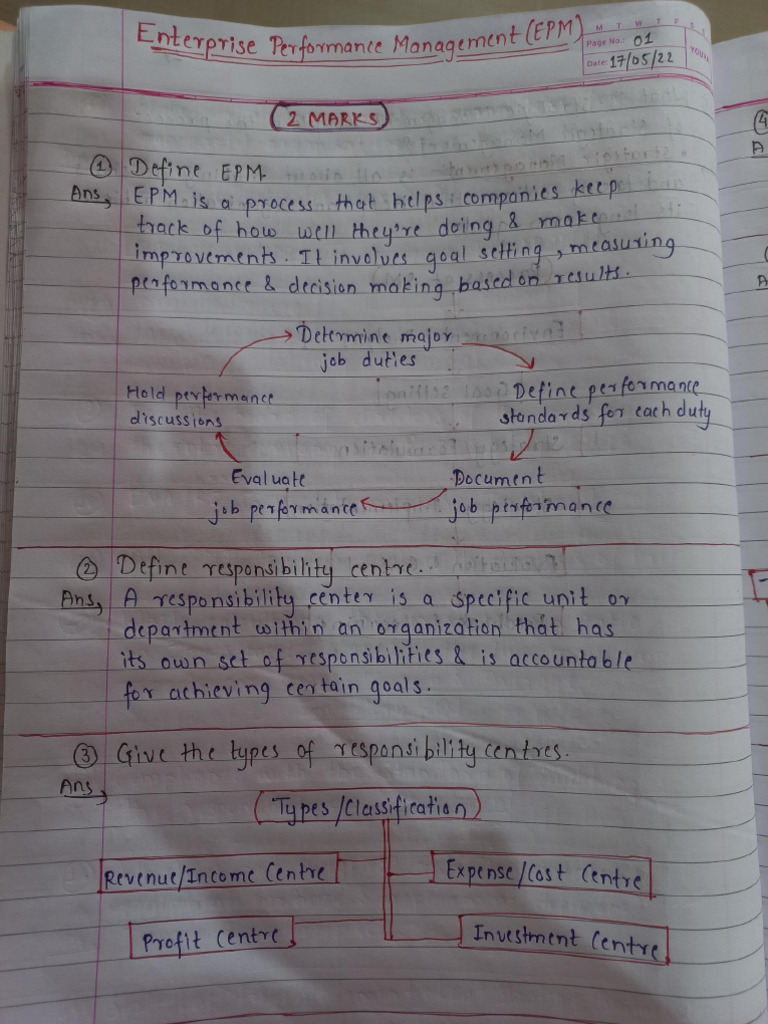 Enterprise Performance Management (EPM)
M T W T F S S
Page No.: 01
Date: 17/05/22
2 MARKS
① Define EPM.
Ans, EPM is a process that helps companies keep
track of how well they're doing & make
improvements. It involves goal setting, measuring
performance & decision making based on results.
Determine major
job duties
Define performance
standards for each duty
Document
job performance
Evaluate
job performance
Hold performance
discussions
② Define responsibility centre.
Ans, A responsibility center is a specific unit or
department within an organization that has
its own set of responsibilities & is accountable
for achieving certain goals.
③ Give the types of responsibility centres.
Ans,
Types/Classification
Revenue/Income Centre
Expense/Cost Centre
Profit Centre
Investment Centre
④
A
A